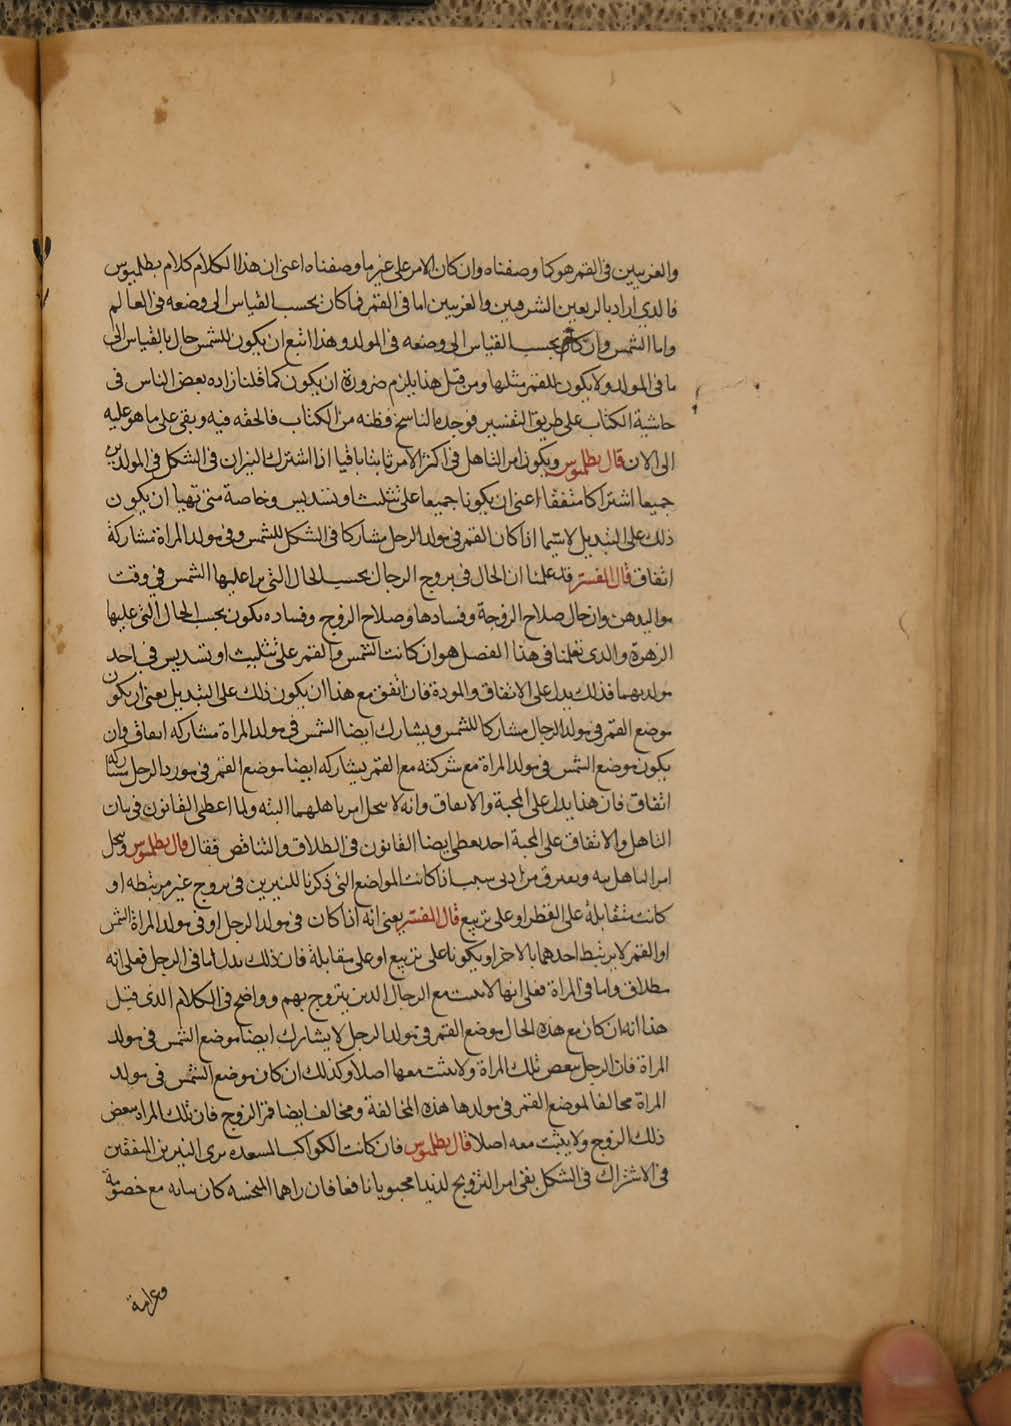 والغربيين فى القمر هو كما وصفناه وان كان الامر على غير ما وصفناه اعنى ان هذا الكلام كلام بطلميوس
فالذي اراد بالربعين الشرقيين والغربيين اما فى القمر فما كان بحسب القياس الى وضعه فى العالم
واما الشمس وان كان بحسب القياس الى وضعه فى المولد وهذا اتبع ان يكون للشمس حال بالقياس الى
ما فى المولد ولا يكون للقمر مثلها ومن قبل هذا يلزم ضرورة ان يكون كما قلنا زاده بعض الناس فى
حاشية الكتاب على طريق التفسير فوجده الناسخ فظنه من الكتاب فالحقه فيه وبقى على ما هو عليه
الى الان قال بطلميوس ويكون امر التاهل فى اكثر الامر ثابتا باقيا اذا اشترك النيران فى الشكل فى المولدين
جميعا اشتراكا متفقا اعنى ان يكونا جميعا على تثليث او تسديس وخاصة متى تهيا ان يكون
ذلك على التبديل لاسيما اذا كان القمر فى مولد الرجل مشاركا فى الشكل للشمس وفى مولد المراة مشاركة
اتفاق قال المفسر قد علمنا ان الحال فى بروج الرجال بحسب الحال التى يرا عليها الشمس فى وقت
مواليدهن وان حال صلاح الزوجة وفسادها وصلاح الزوج وفساده يكون بحسب الحال التى عليها
الزهرة والذى تعلمنا فى هذا الفصل هو ان كانت الشمس والقمر على تثليث او تسديس فى احد
مولديهما فذلك يدل على الاتفاق والمودة فان اتفق مع هذا ان يكون ذلك على التبديل يعنى ان يكون
موضع القمر فى مولد الرجال مشاركا للشمس ويشارك ايضا الشمس فى مولد المراة مشاركه اتفاق وان
يكون موضع الشمس فى مولد المراة مع شركته مع القمر يشاركه ايضا موضع القمر فى مورد الرجل مشاركه
اتفاق فان هذا يدل على المحبة والاتفاق وانه لا ينحل امر تاهلهما البته ولما اعطى القانون فى بيان
التاهل والاتفاق على المحبة احد يعطى ايضا القانون فى الطلاق والتناقص فقال قال بطلميوس وينحل
امر التاهل بته وبفرق من ادنى سبب اذا كانت المواضع التى ذكرنا للنيرين فى بروج غير مرتبطه او
كانت متقابلة على القطر او على تربيع قال المفسر يعنى انه اذا كان فى مولد الرجل او فى مولد المراة الشمس
او القمر لا يرتبط احدهما بالاخر او يكونا على تربيع او على مقابلة فان ذلك يدل اما فى الرجل فعلى انه
يطلاق واما فى المراة فعلى انها لا تثبت مع الرجال الذين يتزوج بهم وواضح فى الكلام الذى قبل
هذا انه ان كان مع هذه الحال موضع القمر فى مولد الرجل لا يشارك ايضا موضع الشمس فى مولد
المراة فان الرجل يبغض تلك المراة ولا يثبت معها اصلا وكذلك ان كان موضع الشمس فى مولد
المراة مخالفا لموضع القمر فى مولدها هذه المخالفة ومخالف ايضا قمر الزوج فان تلك المراه تبغض
ذلك الزوج ولا يثبت معه اصلا قال بطلميوس فان كانت الكواكب المسعده ترى النيرين المتفقين
فى الاشتراك فى الشكل بقى امر التزويج لذيذا محبوبا نافعا فان راهما المنحسه كان ثباته مع خصومة
وغرامة